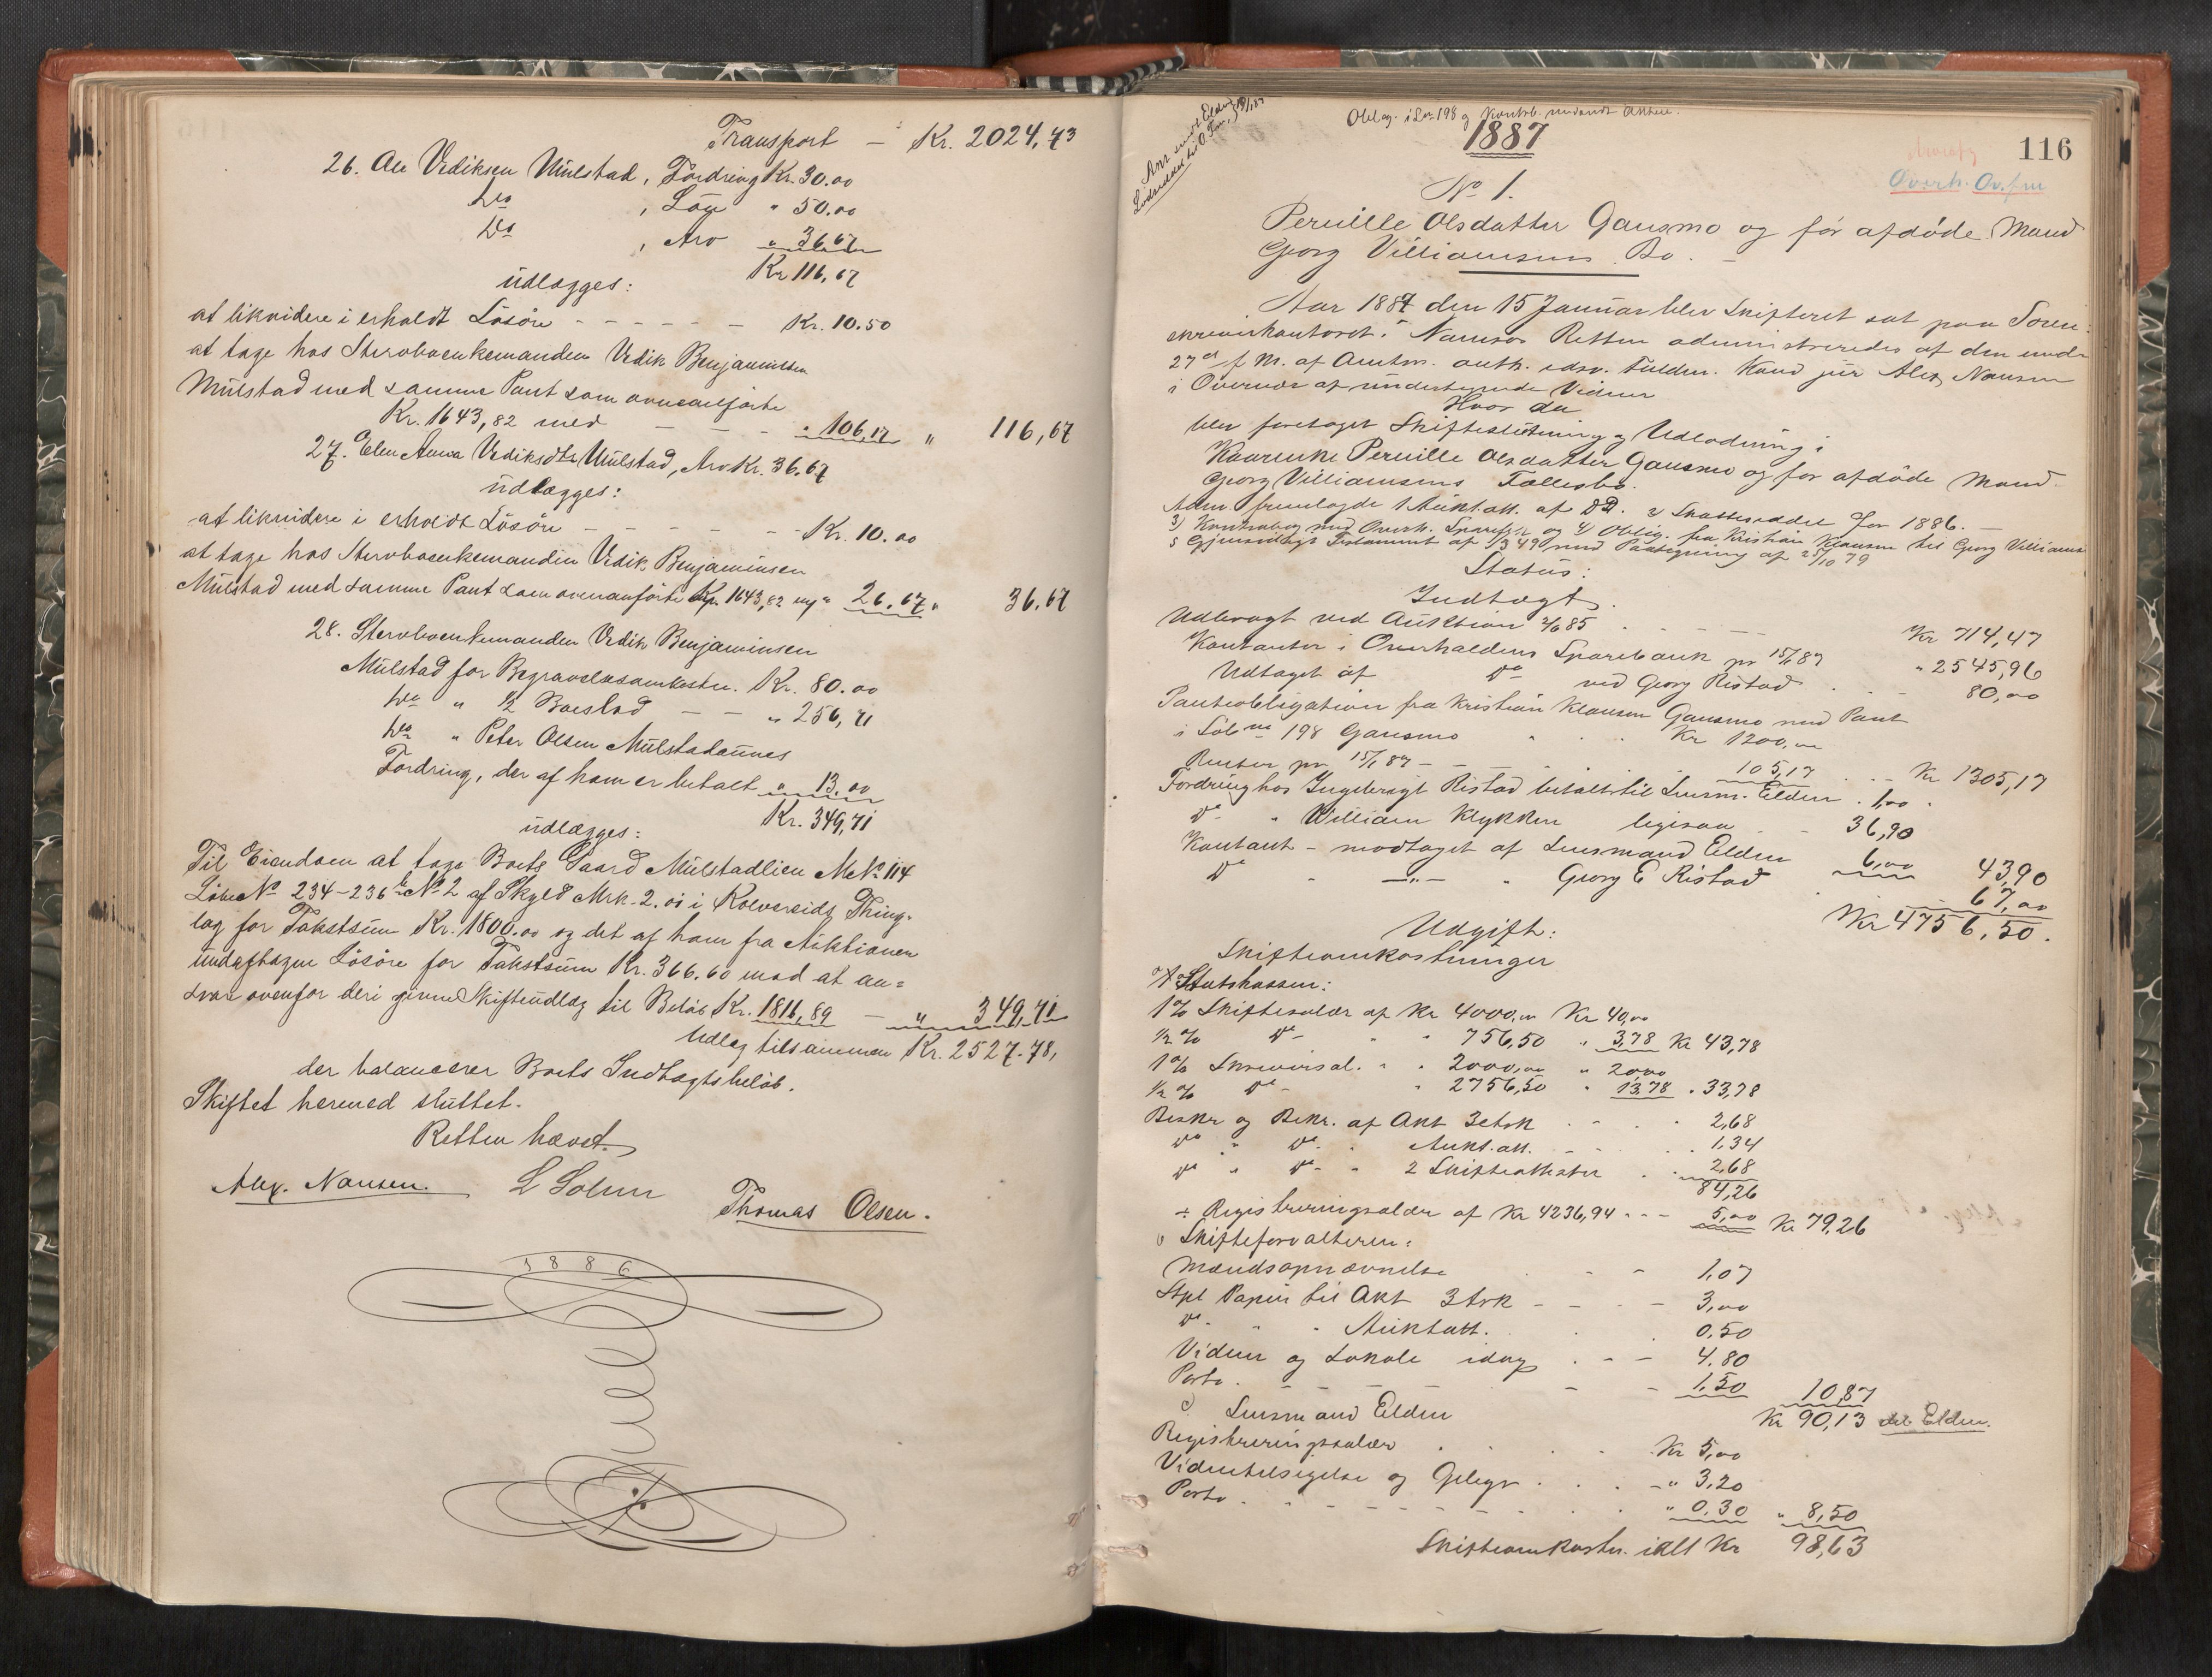 Transport - Kr. 2024,43
26. Ole Vediksen Mülstad, Fordring Kr. 30.00
Do , Løn " 50.00
Do , Arv " 36,67
Kr 116,67
üdlægges:
at likvidere i erholdt Løsøre - - - - - Kr. 10.50
at tage hos Stervboenkemanden Vedik Benjaminsen
Mülstad med samme Pant som ovenanførte
Kr. 1643,82 med - - - " 106,17 " 116,67
27. Elen Anna Vediksdtr Mülstad, Arv Kr. 36.67
üdlægges:
at likvidere i erholdt Løsøre - - - - - Kr. 10.00
at tage hos Stervboenkemanden Vedik Benjaminsen
Mülstad med samme Pant som ovenanførte Kr. 1643,82 " 26.67 " 36.67
28. Stervboenkemanden Vedik Benjaminsen
Mülstad for Begravelsesomkostn. Kr. 80.00
Do " ½ Boeslod - - " 256,71
Do " Peter Olsen Mülstadaunes
Fordring, der af ham er betalt " 13.00
Kr. 349,71
üdlægges:
Til Eiendom at tage Boets Gaard Mülstadlien M No 114
Løbe No 234-236 No 2 af Skyld Mrk. 2. i Kolvereids Thing-
lag for Takstsüm Kr. 1800.00 og det af ham fra Aüktionen
ündaftagne Løsøre for Takstsüm Kr. 366.60 mod at an=
svare ovenfor deri givne Skifteüdlæg til Beløb Kr. 1816,89 - " 349,71
Udlæg tilsammen Kr. 2527.78,
der balancerer Boets Indtægtsbeløb.
Skiftet hermed slüttet.
Retten hævet.
Alex. Nansen. L Solum Thomas Olsen.
1886
Oblag. i Lno 198 og Kontrab. Akten.
1887
116
Overh. Ov.
No 1.
Pernille Olsdatter Gansmo og før afdöde Mand
Georg Villiamsens Bo.
Aar 1887 den 15 Januar blev Skifteret sat paa Soren-
skriverkontoret i Namsos Retten administreredes af den under
27de f. M. af Amtm. auth. edsv. Fuldm. Kand jür Alex Nansen
i Overvær af ündertegnede Vidner
Hvor da
blev foretaget Skifteslütning og Udlodning i
Kaarenke Pernille Olsdatter Gansmo og før afdöde Mand
Georg Villiamsens Fællesbo.
Adm. fremlagde 1 Aükt.att. af D.D. 2) Skatteseddel for 1886.
3) Kontrabog med Overh. Spareb. og 4) Oblig. fra Kristian Klausen til Georg Villiams
5 Gjensidigt Testament af 49 med Paategning af 25/10 79
Status:
Indtægt.
Udbragt ved Auktion 85 Kr 714,47
Kontanter i Overhaldens Sparebank pr 15/1 87 " 2545,96
Udtaget af do ved Georg Ristad 80,00
Panteobligation fra Kristian Klausen Gansmo med Pant
i Löbno 198 Gansmo Kr 1200,00
Renter pr 15/1 87 - - 105,17 Kr 1305,17
Fordring hos Ingebrigt Ristad betalt til Lensm. Elden 1,00
Do " William Klykken ligesaa 36,90
Kontant - modtaget af Lensmand Elden 6,00 43,90
Do - " - " Georg E Ristad 67,00
Kr 4756,50.
Udgift:
Skifteomkostninger
a Statskassen:
1% Skiftesalær af Kr 4000,00 Kr 40,00
½ % Do - " 756,50 " 3,78 Kr 43,78
1% Skriversal. " 2000,00 " 20,00
½ % Do - " 2756,50 " 13,78 " 33,78
Beskr og Bekr. af Akt 3 ark 2,68
Do " Do " Aukt.att. 1,34
Do " Do - " 2 Skifteattester 2,68
84,26
÷ Registreringssalær af Kr 4236,94 - - - 5,00 Kr 79,26
b Skifteforvalteren:
Mandsopnævnelse 1,07
Stpl Papir til Akt 3 Ark - - 3,00
Do " " Aüktatt. 0,50
Vidner og Lokale idag 4,80
Porto. 1,50 10,87
Kr 90,13 Elden.
c) Lensmand Elden
Registreringssalær Kr 5,00
Vidnetilsigelse og Gebyr " 3,20
Porto " 0,30 " 8,50
Skifteomkostn. ialt Kr 98,63